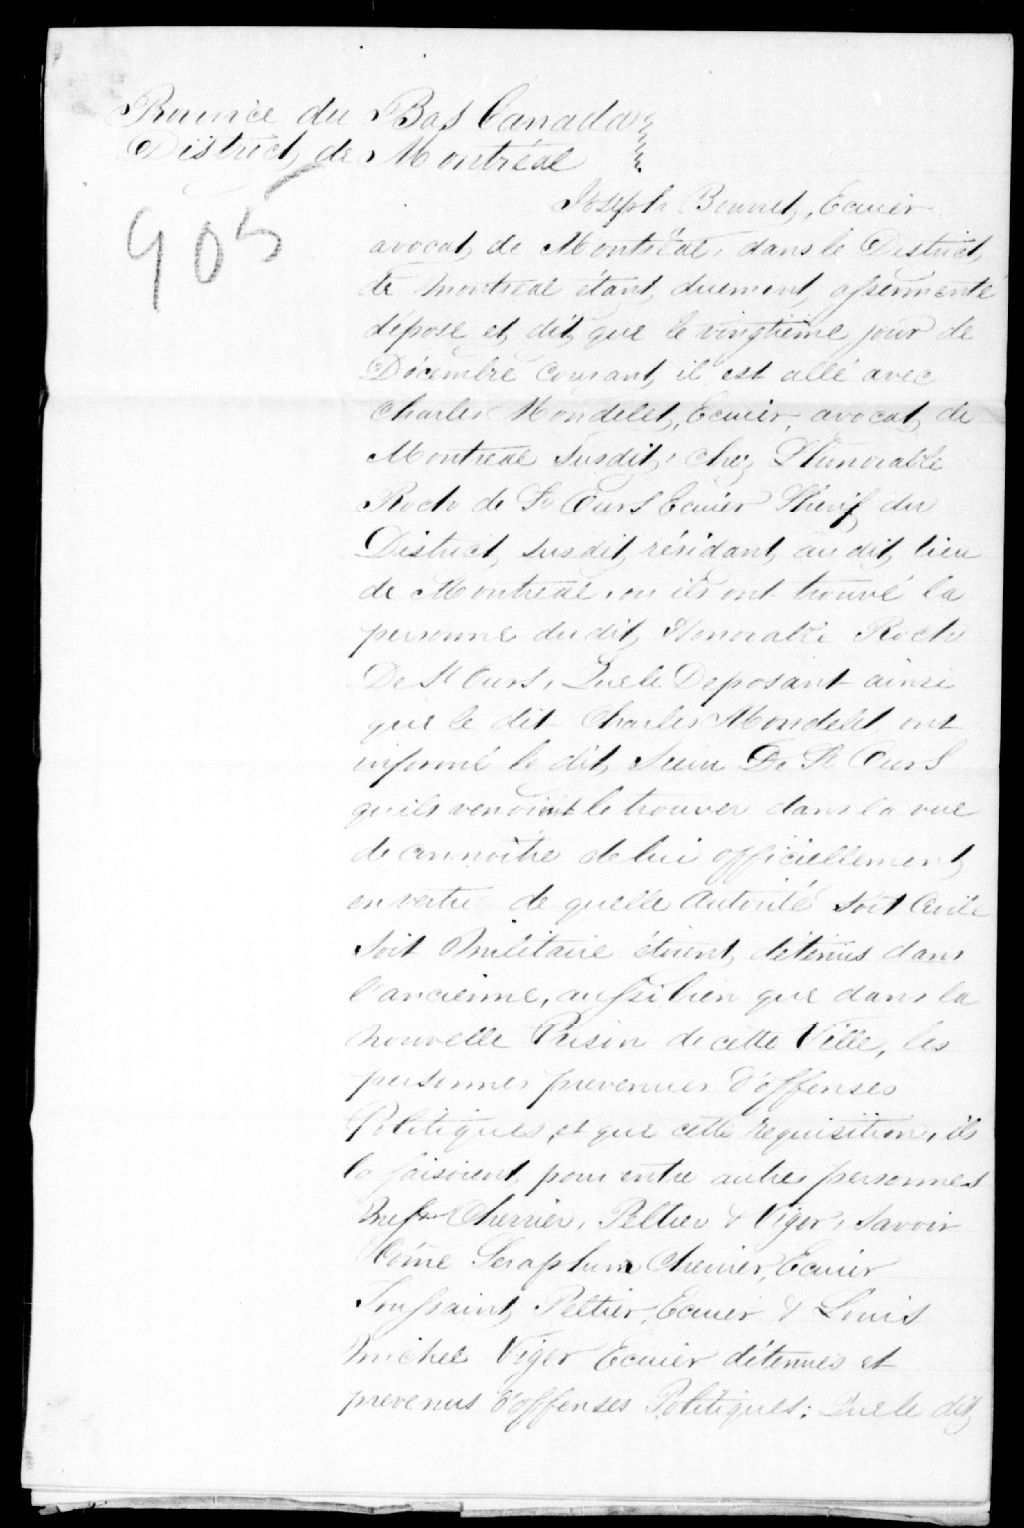 Province du Bas Canada
District de Montréal
905
Joseph Bourret, Ecuier
avocat de Montréal, dans le District
de Montréal étant duement assermenté
dépose et dit que le vingtième jour de
Décembre Courant il est allé avec
Charles Mondelet, Ecuier, avocat de
Montréal Susdit, chez L'Honorable
Roch de St Ours Ecuier Shérif du
District susdit, résidant au dit lieu
de Montréal, ou ils ont trouvé la
personne du dit Honorable Roch
De St Ours, Que le Deposant ainsi
que le dit Charles Mondelet ont
informé le dit Sieur De St Ours
qu'ils venoient le trouver dans la vue
de connoître de lui officiellement
en vertu de quelle Autorité soit Civile
soit Militaire étoient détenus dans
l'ancienne, aussi bien que dans la
nouvelle Prison de cette Ville, les
personnes prevenues d'offenses
Politiques, et que cette requisition, ils
la faisoient pour entre autres personnes
Messrs Cherrier, Peltier & Viger, savoir
Côme Seraphim Cherrier, Ecuier
Toussaint Peltier, Ecuier & Louis
Michel Viger Ecuier détenues et
prevenus d'offenses Politiques; Que le dit